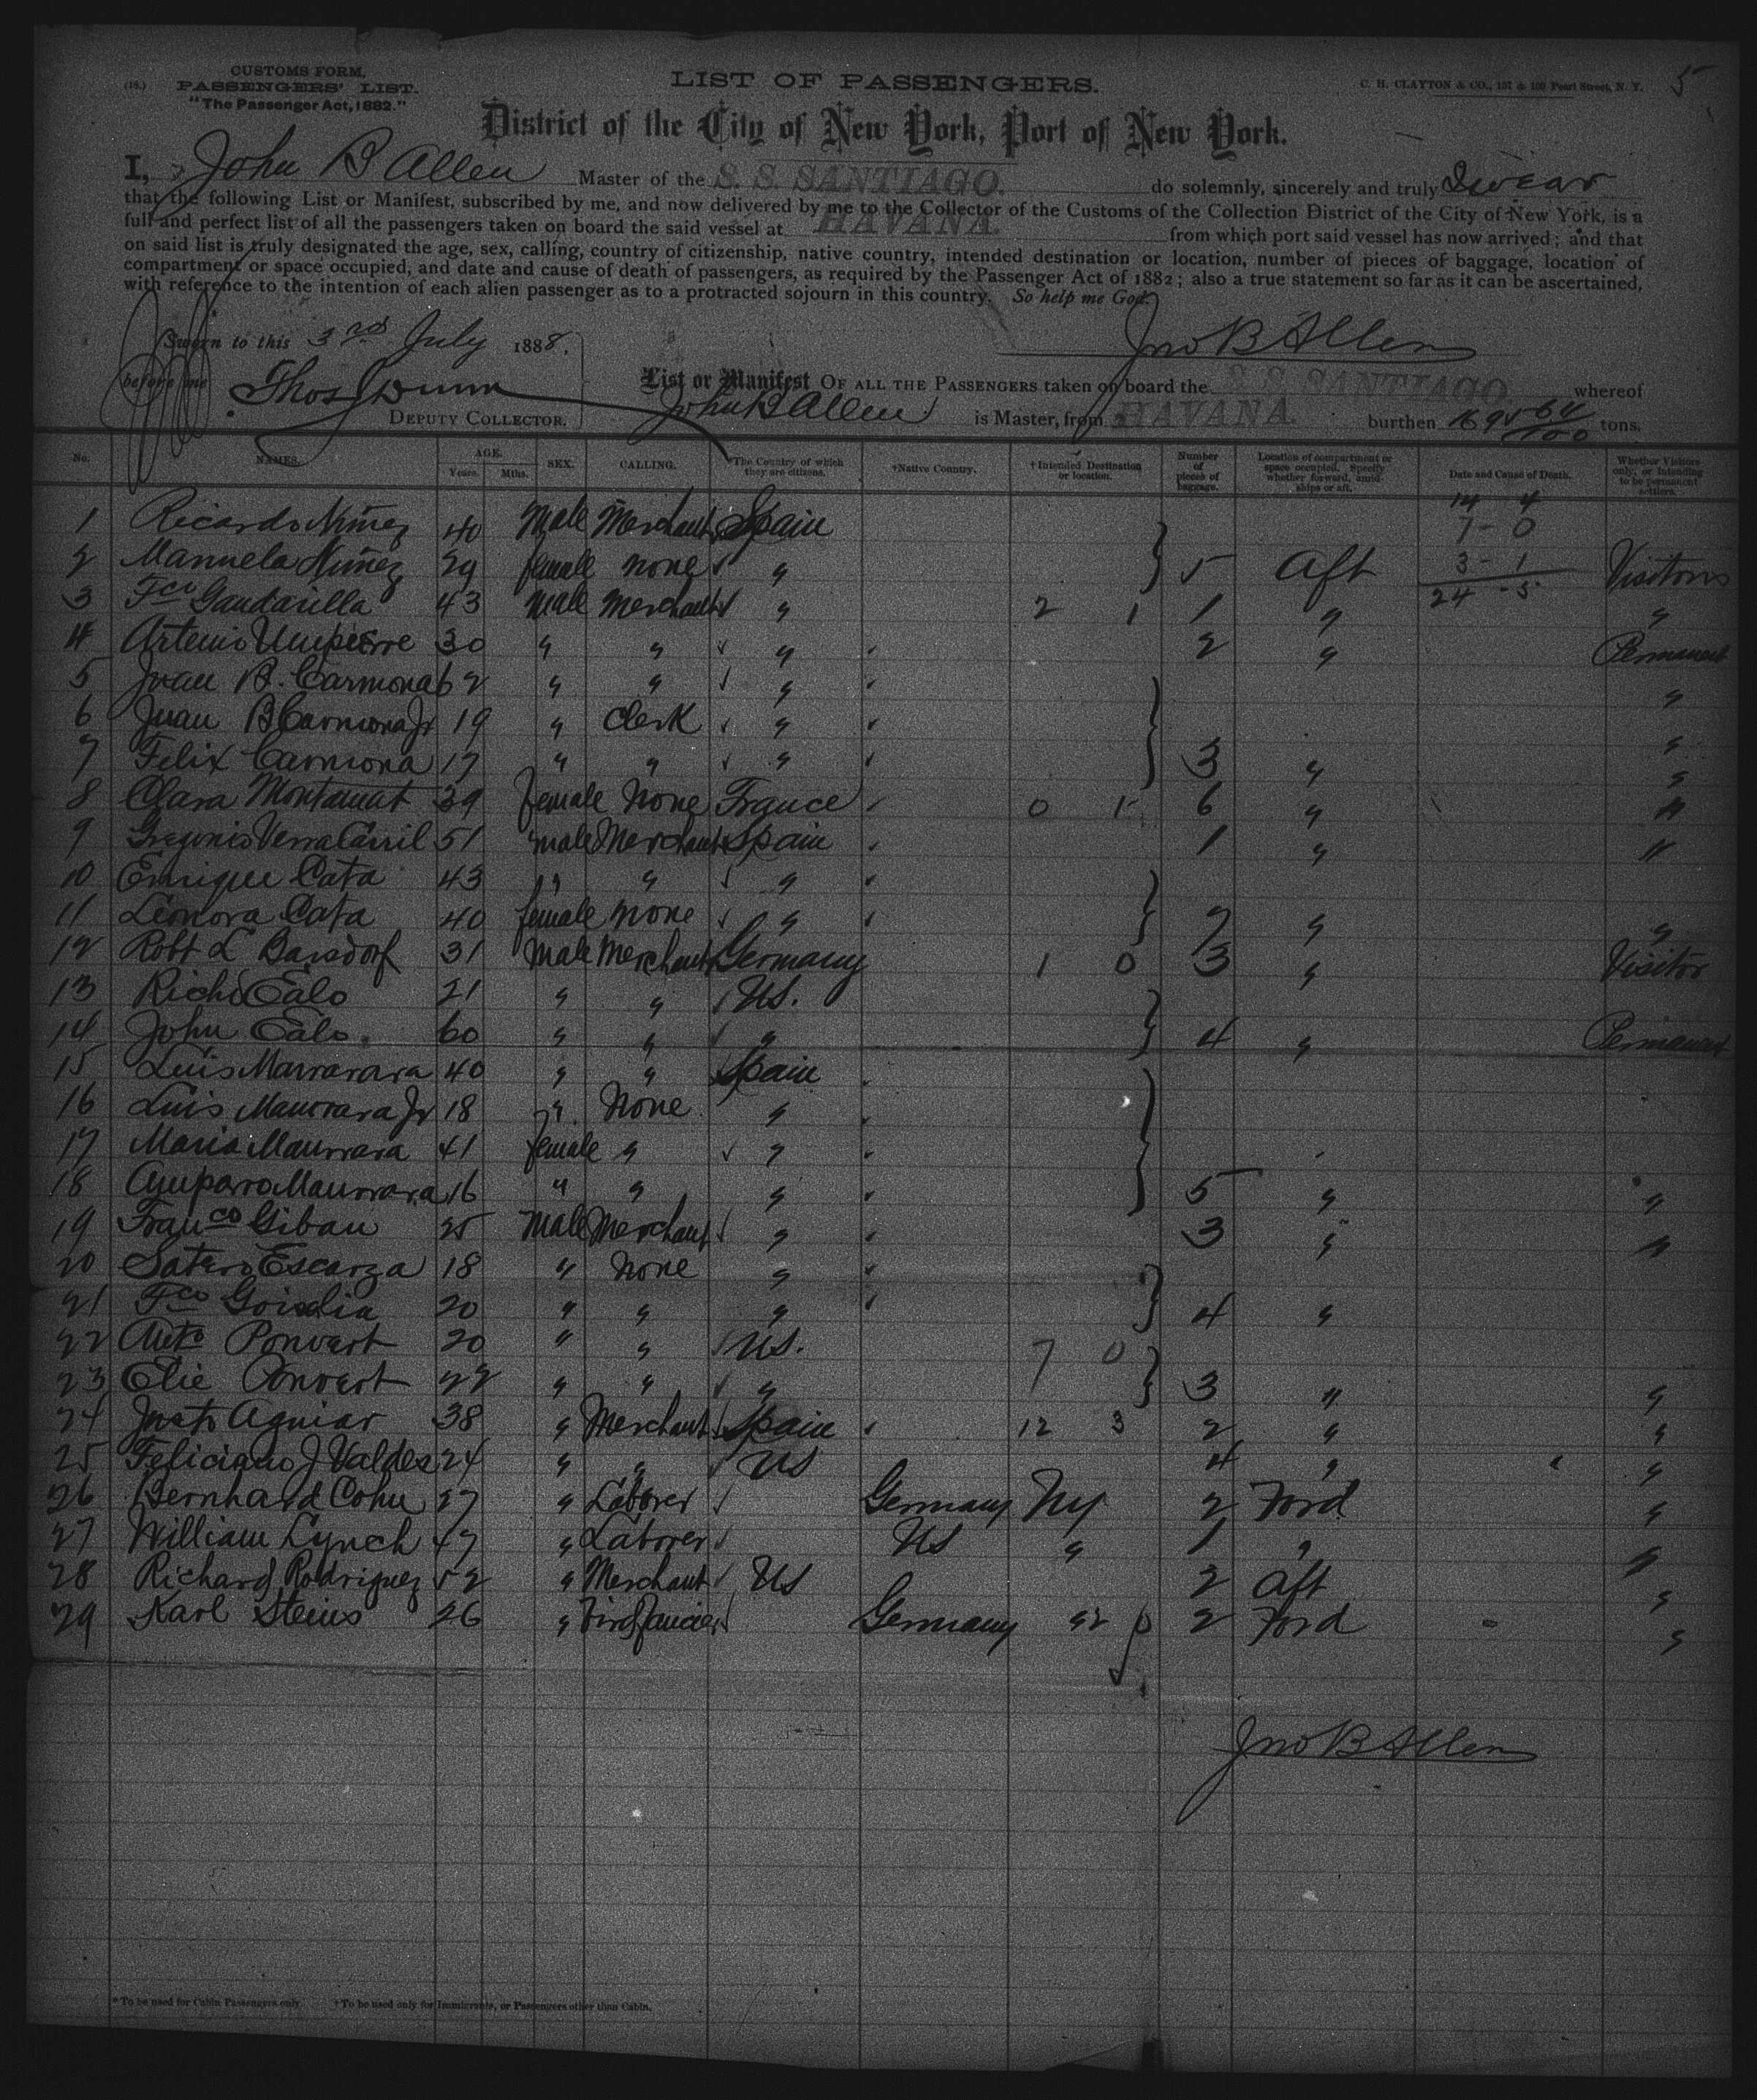 (18.) CUSTOMS FORM,
PASSENGERS' LIST.
"The Passenger Act, 1882."
LIST OF PASSENGERS.
C. H. CLAYTON & CO., 157 & 159 Pearl Street, N. Y.
5
District of the City of New York, Port of New York.
I, John B Allen Master of the S. S. SANTIAGO. do solemnly, sincerely and truly Swear
that the following List or Manifest, subscribed by me, and now delivered by me to the Collector of the Customs of the Collection District of the City of New York, is a
full and perfect list of all the passengers taken on board the said vessel at HAVANA. from which port said vessel has now arrived; and that
on said list is truly designated the age, sex, calling, country of citizenship, native country, intended destination or location, number of pieces of baggage, location of
compartment or space occupied, and date and cause of death of passengers, as required by the Passenger Act of 1882; also a true statement so far as it can be ascertained,
with reference to the intention of each alien passenger as to a protracted sojourn in this country. So help me God.
Sworn to this 3rd July 1888.
Jno B Allen
before me Thos Dunn
DEPUTY COLLECTOR.
List or Manifest OF ALL THE PASSENGERS taken on board the S. S. SANTIAGO. whereof
John B Allen is Master, from HAVANA. burthen 1695 64/100 tons.
No. NAMES. AGE. Years. Mths. SEX. CALLING. *The Country of which they are citizens. †Native Country. †Intended Destination or location. Number of pieces of baggage. Location of compartment or space occupied. Specify whether forward, amidships or aft. Date and Cause of Death. Whether Visitors only, or intending to be permanent settlers.
14 4
1 Ricardo Nuñez 40 Male Merchant Spain 7 - 0
2 Manuela Nuñez 29 female none " 5 Aft 3 - 1 Visitors
24 - 5
3 Fco Gandarilla 43 Male Merchant " 2 1 1 " "
4 Artemio 30 " " " 2 " Permanent
5 Juan B. Carmona 62 " " " "
6 Juan B Carmona Jr 19 " Clerk " "
7 Felix Carmona 17 " " " 3 " "
8 Clara Montamat 39 female None France 0 1 6 " "
9 Gregorio 51 male Merchant Spain 1 " "
10 Enrique Cata 43 " " "
11 Leonora Cata 40 female none " " "
12 Robt L Barsdorf 31 Male Merchant Germany 1 0 3 " Visitor
13 Richd Ealo 21 " " US.
14 John Ealo 60 " " " 4 " Permanent
15 Luis 40 " " Spain
16 Luis Manrara Jr 18 " None "
17 Maria Manrara 41 female " "
18 Amparo Manrara 16 " " " 5 " "
19 Franco Gibau 25 Male Merchant " 3 " "
20 Satero Escarza 18 " None "
21 Fco 20 " " " 4 "
22 Anto Ponvert 20 " " US. 7 0
23 Elie Ponvert 22 " " " 3 " "
24 Justo Aguiar 38 " Merchant Spain 12 3 2 " "
25 Feliciano J Valdes 24 " " US 4 " "
26 Bernhard Cohn 27 " Laborer Germany Ny 2 Ford "
27 William Lynch 47 " Laborer US " 1 " "
28 Richard Rodriguez 52 " Merchant US 2 Aft "
29 Karl Steins 26 " Birdfancier Germany 2 Ford "
Jno B Allen
*To be used for Cabin Passengers only. †To be used only for Immigrants, or Passengers other than Cabin.